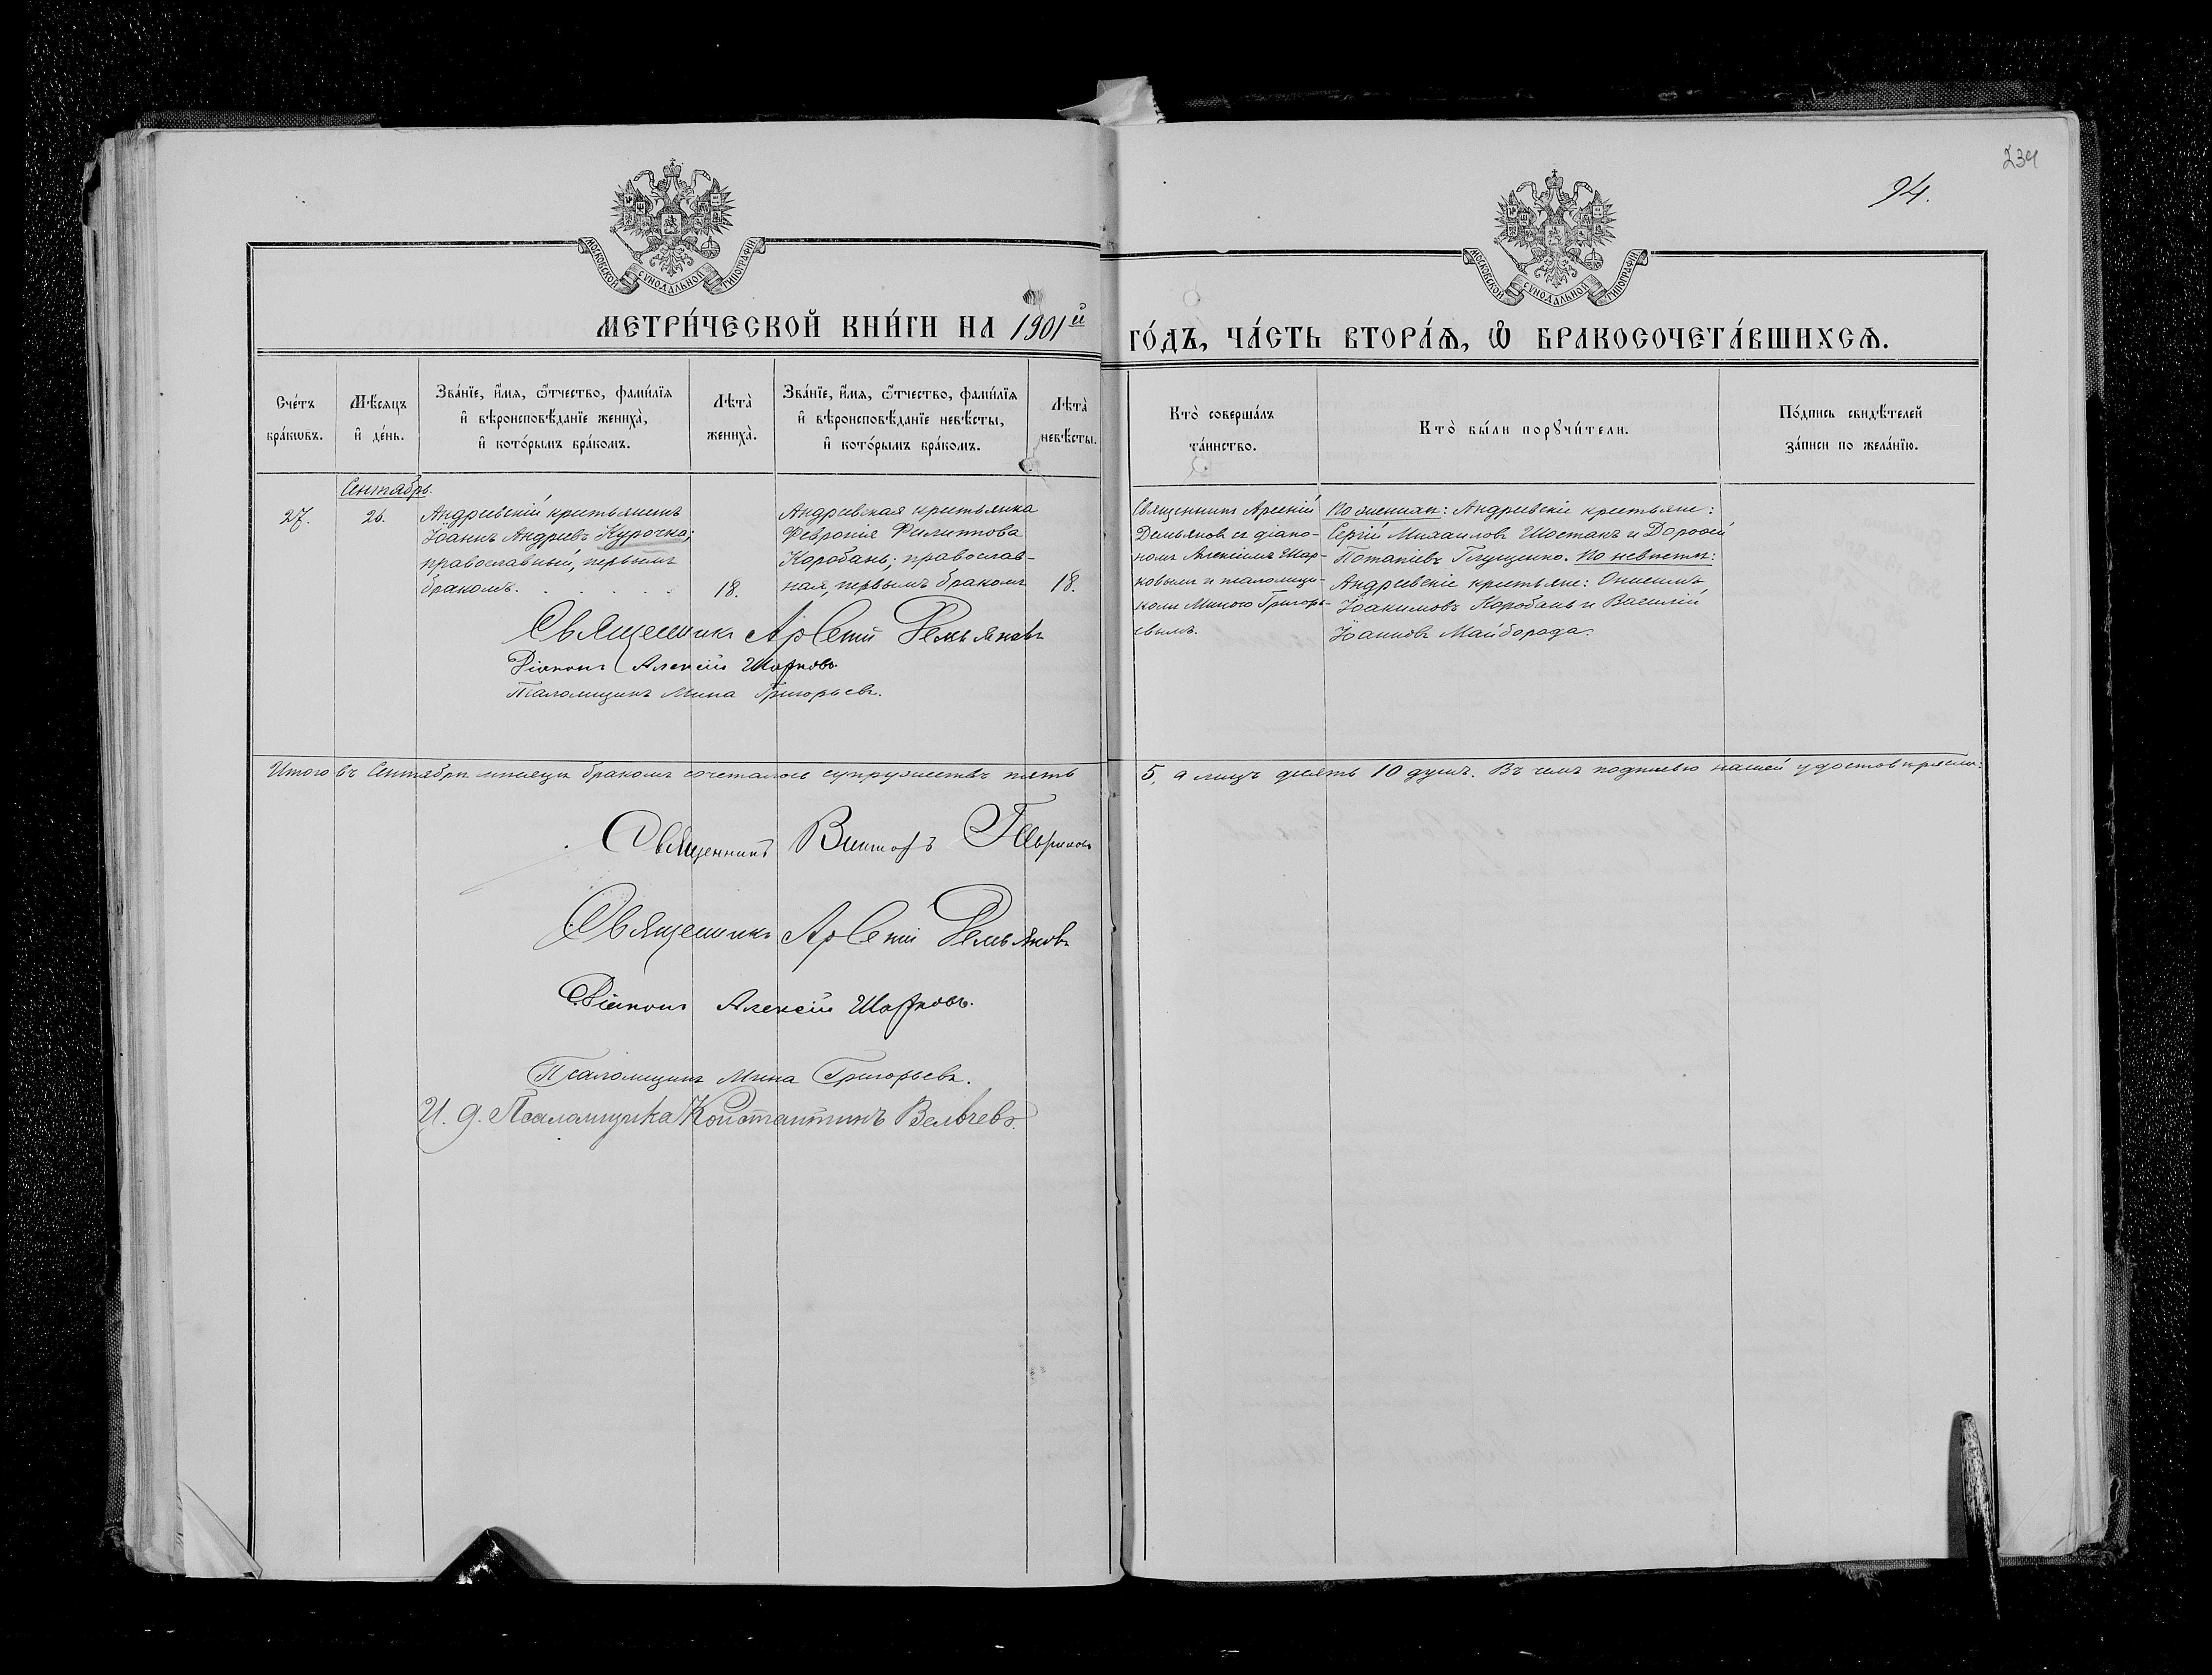 234
94.
МОСКОВСКОЙ СѴНОДАЛЬНОЙ ТИПОГРАФІИ
МОСКОВСКОЙ СѴНОДАЛЬНОЙ ТИПОГРАФІИ
МЕТРИ́ЧЕСКОЙ КНИ́ГИ НА 1901й ГО́ДЪ, ЧА́СТЬ ВТОРА́Ѧ, Ѽ БРАКОСОЧЕТА́ВШИХСѦ.
Сче́тъ бра́кѡвъ.
Мѣ́сяцъ и҆ де́нь.
Зва́нїе, и҆́мя, ѻ҆́тчество, фами́лїя
и҆ вѣроисповѣ́данїе жениха̀,
и҆ кото́рымъ бра́комъ.
Лѣта̀ жениха̀.
Зва́нїе, и҆́мя, ѻ҆́тчество, фами́лїя
и҆ вѣроисповѣ́данїе невѣ́сты,
и҆ кото́рымъ бра́комъ.
Лѣта̀ невѣ́сты.
Кто̀ соверша́лъ та́инство.
Кто̀ бы́ли порꙋчи́тели.
По́дпись свидѣ́телей за́писи по жела́нїю.
Сентябрь.
27.
26.
Андреевскій крестьянинъ
Іоаннъ Андреевъ Курочка;
православный, первымъ
бракомъ. . . . . .
18.
Андреевская крестьянка
Февронія Филиппова
Коробань; православ-
ная, первымъ бракомъ
18.
Священникъ Арсеній
Демьяновъ съ діако-
номъ Алексіемъ Шар-
ковымъ и псаломщи-
комъ Миною Григорь-
евымъ.
По женихѣ: Андреевскіе крестьяне:
Сергій Михаиловъ Шостакъ и Дороѳей
Потапіевъ Глущенко. По невѣстѣ:
Андреевскіе крестьяне: Онисимъ
Іоакимовъ Коробань и Василій
Іоанновъ Майборода.
Священникъ Арсеній Демьяновъ
Діаконъ Алексій Шарковъ
Псаломщикъ Мина Григорьевъ.
Итого въ Сентябрѣ мѣсяцѣ бракомъ сочеталось супружествъ пять 5, а лицъ десять 10 душъ. Въ чемъ подписью нашей удостовѣряемъ:
Священникъ Викторъ
Священникъ Арсеній Демьяновъ
Діаконъ Алексій Шарковъ.
Псаломщикъ Мина Григорьевъ.
И. д. Псаломщика Константинъ Вельчевъ.